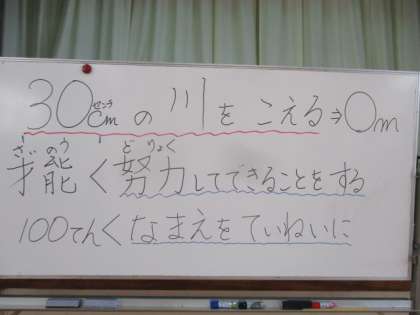 30cmの川をこえる⇒0m
才能く努力してできることをする
100てんくなまえをていねいに